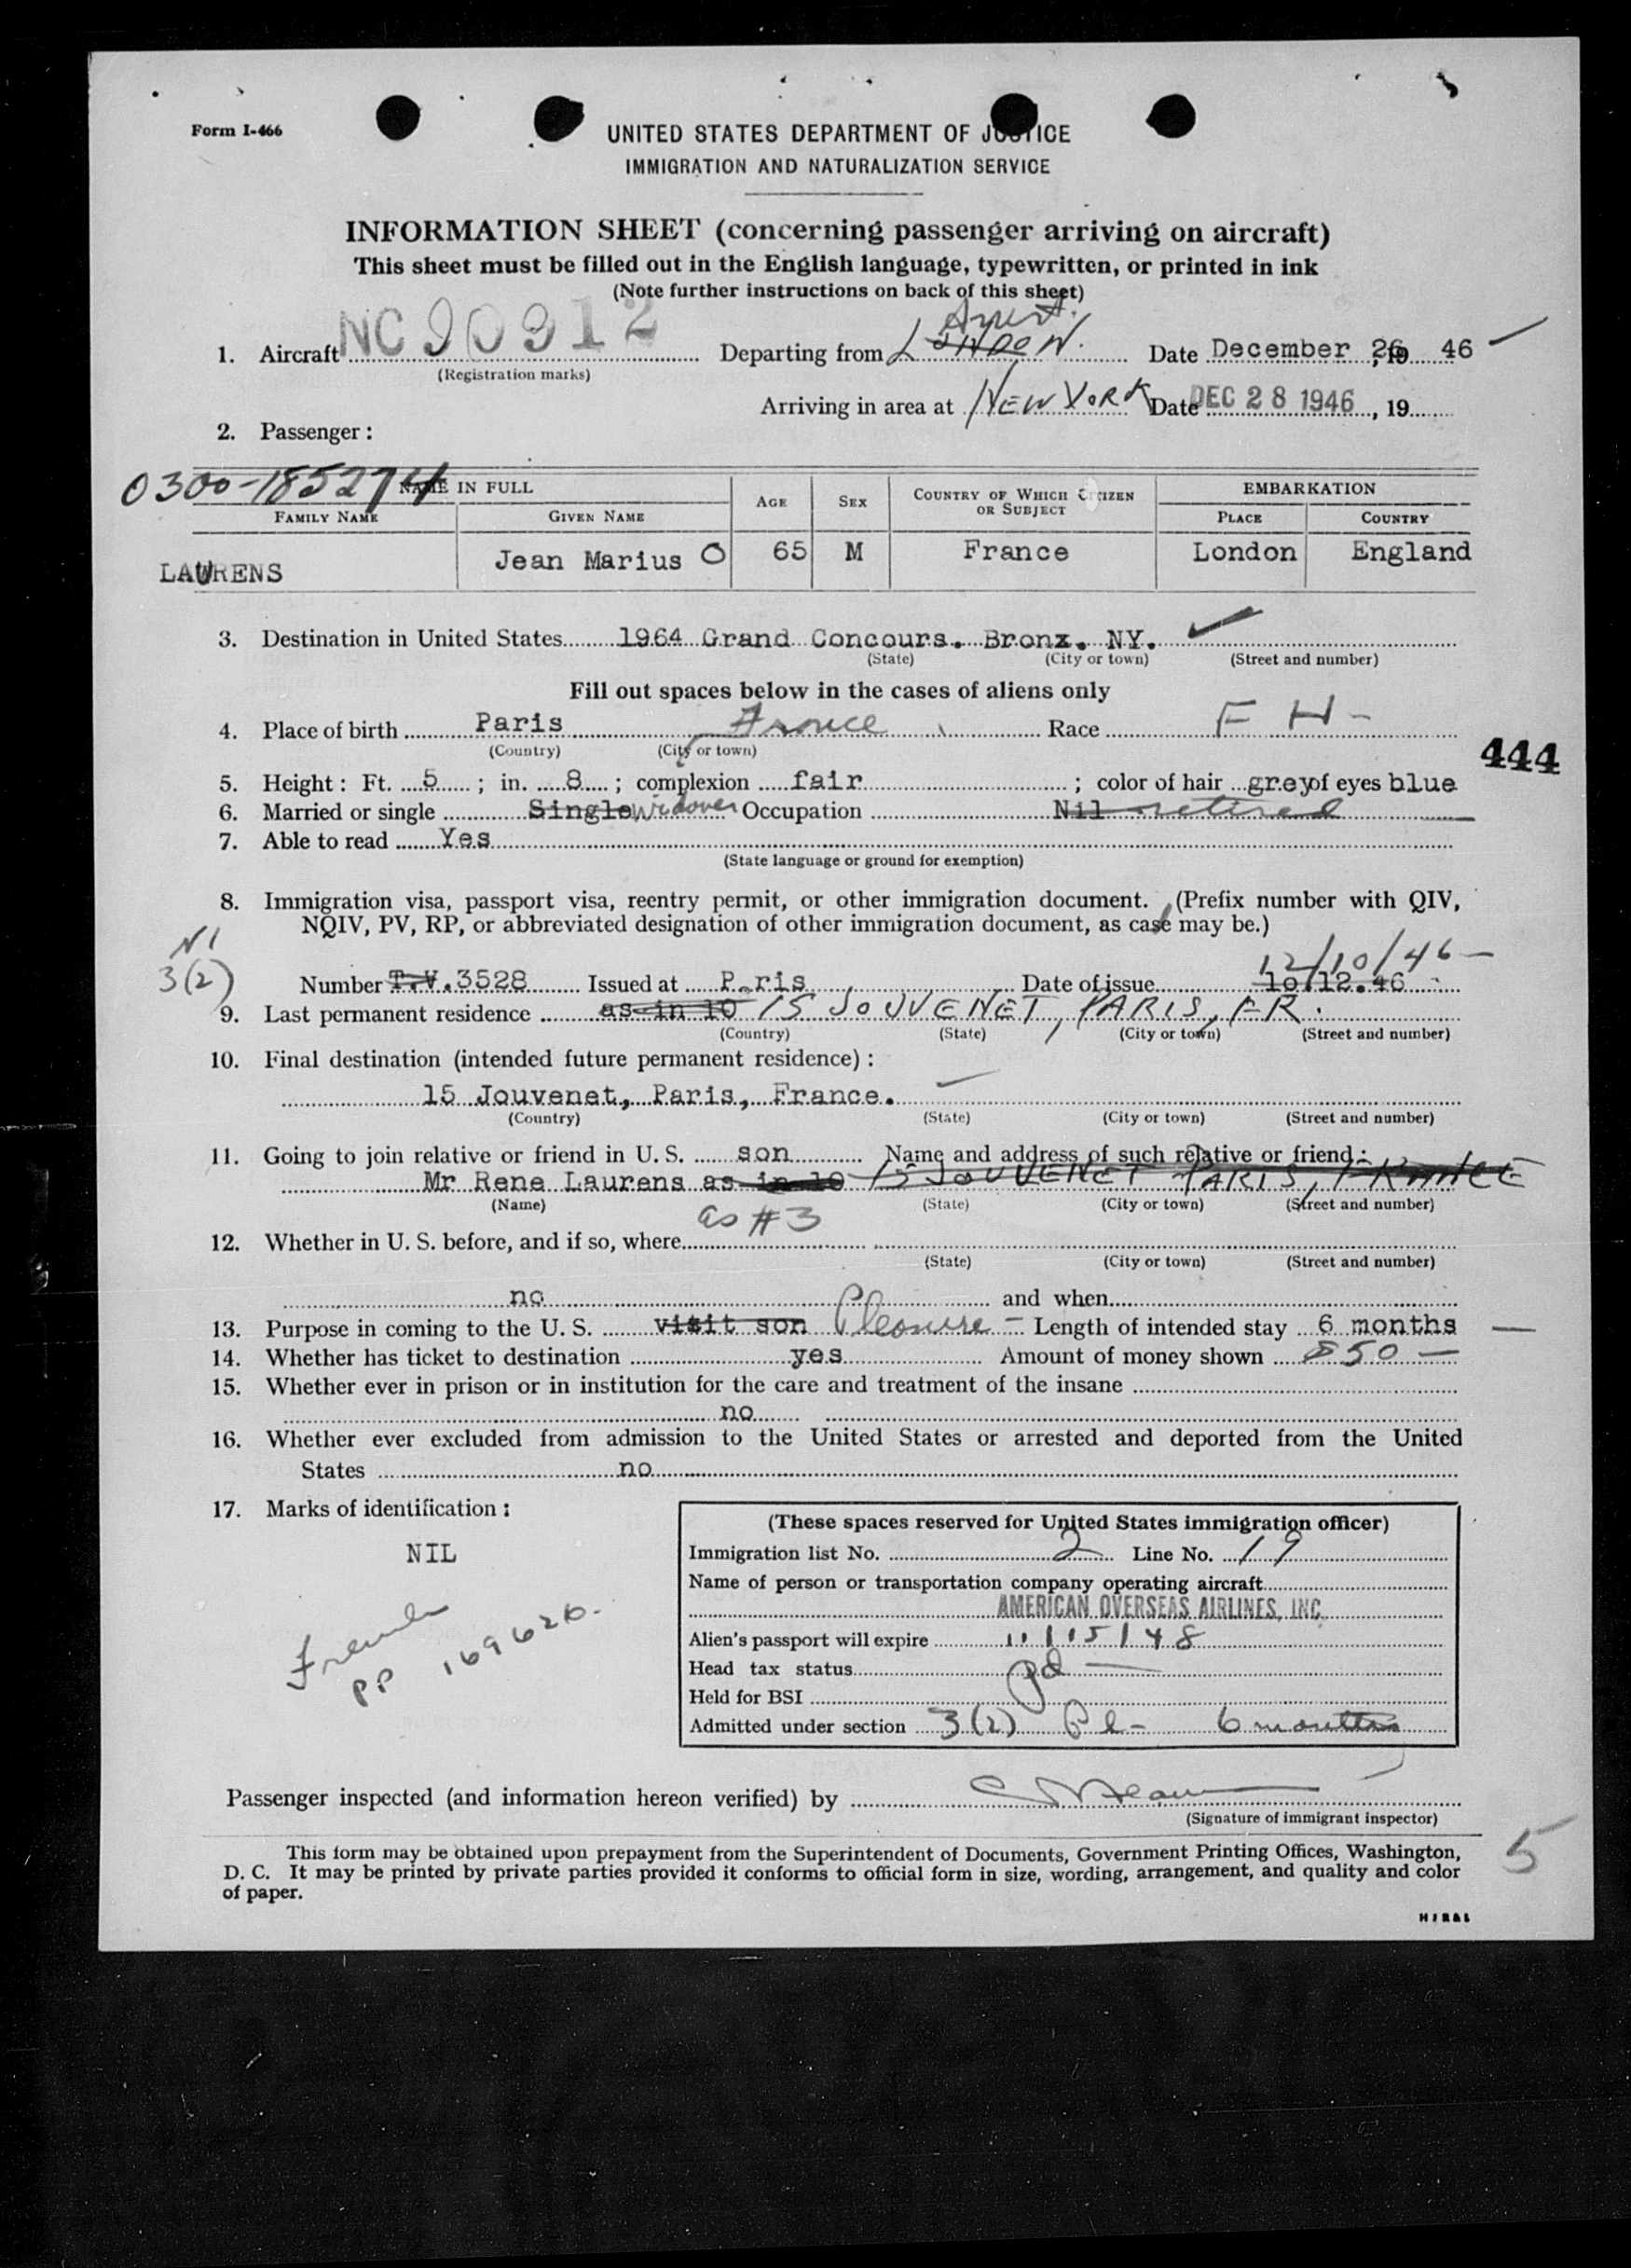 Form I-466
UNITED STATES DEPARTMENT OF JUSTICE
IMMIGRATION AND NATURALIZATION SERVICE
INFORMATION SHEET (concerning passenger arriving on aircraft)
This sheet must be filled out in the English language, typewritten, or printed in ink
(Note further instructions on back of this sheet)
1. Aircraft NC 90912 Departing from LONDON. Date December 26, 19 46
(Registration marks)
Arriving in area at NEW YORK Date DEC 28 1946, 19
2. Passenger:
0300-185274 NAME IN FULL AGE SEX COUNTRY OF WHICH CITIZEN OR SUBJECT EMBARKATION
FAMILY NAME GIVEN NAME PLACE COUNTRY
LAURENS Jean Marius O 65 M France London England
3. Destination in United States 1964 Grand Concours. Bronx. NY.
(State) (City or town) (Street and number)
Fill out spaces below in the cases of aliens only
4. Place of birth Paris France Race F H-
(Country) (City or town)
444
5. Height: Ft. 5; in. 8; complexion fair; color of hair grey of eyes blue
6. Married or single Single widower Occupation Nil retired
7. Able to read Yes
(State language or ground for exemption)
8. Immigration visa, passport visa, reentry permit, or other immigration document. (Prefix number with QIV,
NQIV, PV, RP, or abbreviated designation of other immigration document, as case may be.)
3(2) 12/10/46
Number T.V. 3528 Issued at P.ris Date of issue 10.12.46
9. Last permanent residence as in 10 15 JOUVENET, PARIS, FR.
(Country) (State) (City or town) (Street and number)
10. Final destination (intended future permanent residence):
15 Jouvenet, Paris, France.
(Country) (State) (City or town) (Street and number)
11. Going to join relative or friend in U. S. son Name and address of such relative or friend:
Mr Rene Laurens as in 10 15 JOUVENET PARIS, FRANCE
(Name) (State) (City or town) (Street and number)
as #3
12. Whether in U. S. before, and if so, where
(State) (City or town) (Street and number)
no and when
13. Purpose in coming to the U. S. visit son Pleasure - Length of intended stay 6 months
14. Whether has ticket to destination yes Amount of money shown $50 -
15. Whether ever in prison or in institution for the care and treatment of the insane
no
16. Whether ever excluded from admission to the United States or arrested and deported from the United
States no
17. Marks of identification:
NIL
French
PP 169626.
(These spaces reserved for United States immigration officer)
Immigration list No. 2 Line No. 19
Name of person or transportation company operating aircraft
AMERICAN OVERSEAS AIRLINES, INC.
Alien's passport will expire 11/15/48
Head tax status pd
Held for BSI
Admitted under section 3(2) Pl- 6 months
Passenger inspected (and information hereon verified) by
(Signature of immigrant inspector)
This form may be obtained upon prepayment from the Superintendent of Documents, Government Printing Offices, Washington,
D. C. It may be printed by private parties provided it conforms to official form in size, wording, arrangement, and quality and color
of paper.
5